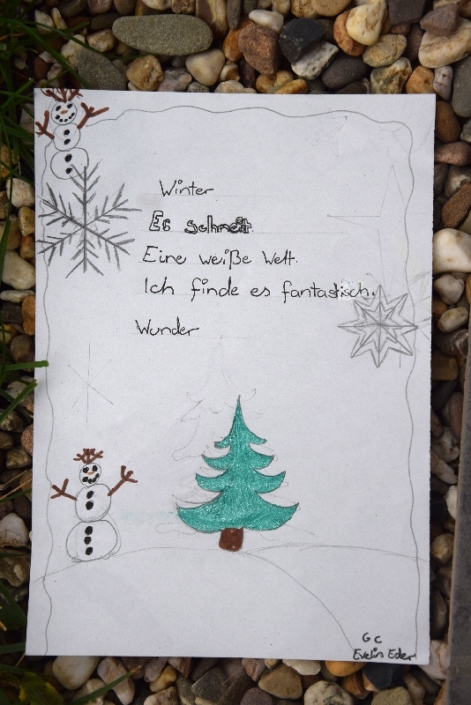 Winter
Es schneit.
Eine weiße Welt.
Ich finde es fantastisch.
Wunder
Gc
Evelin Eder